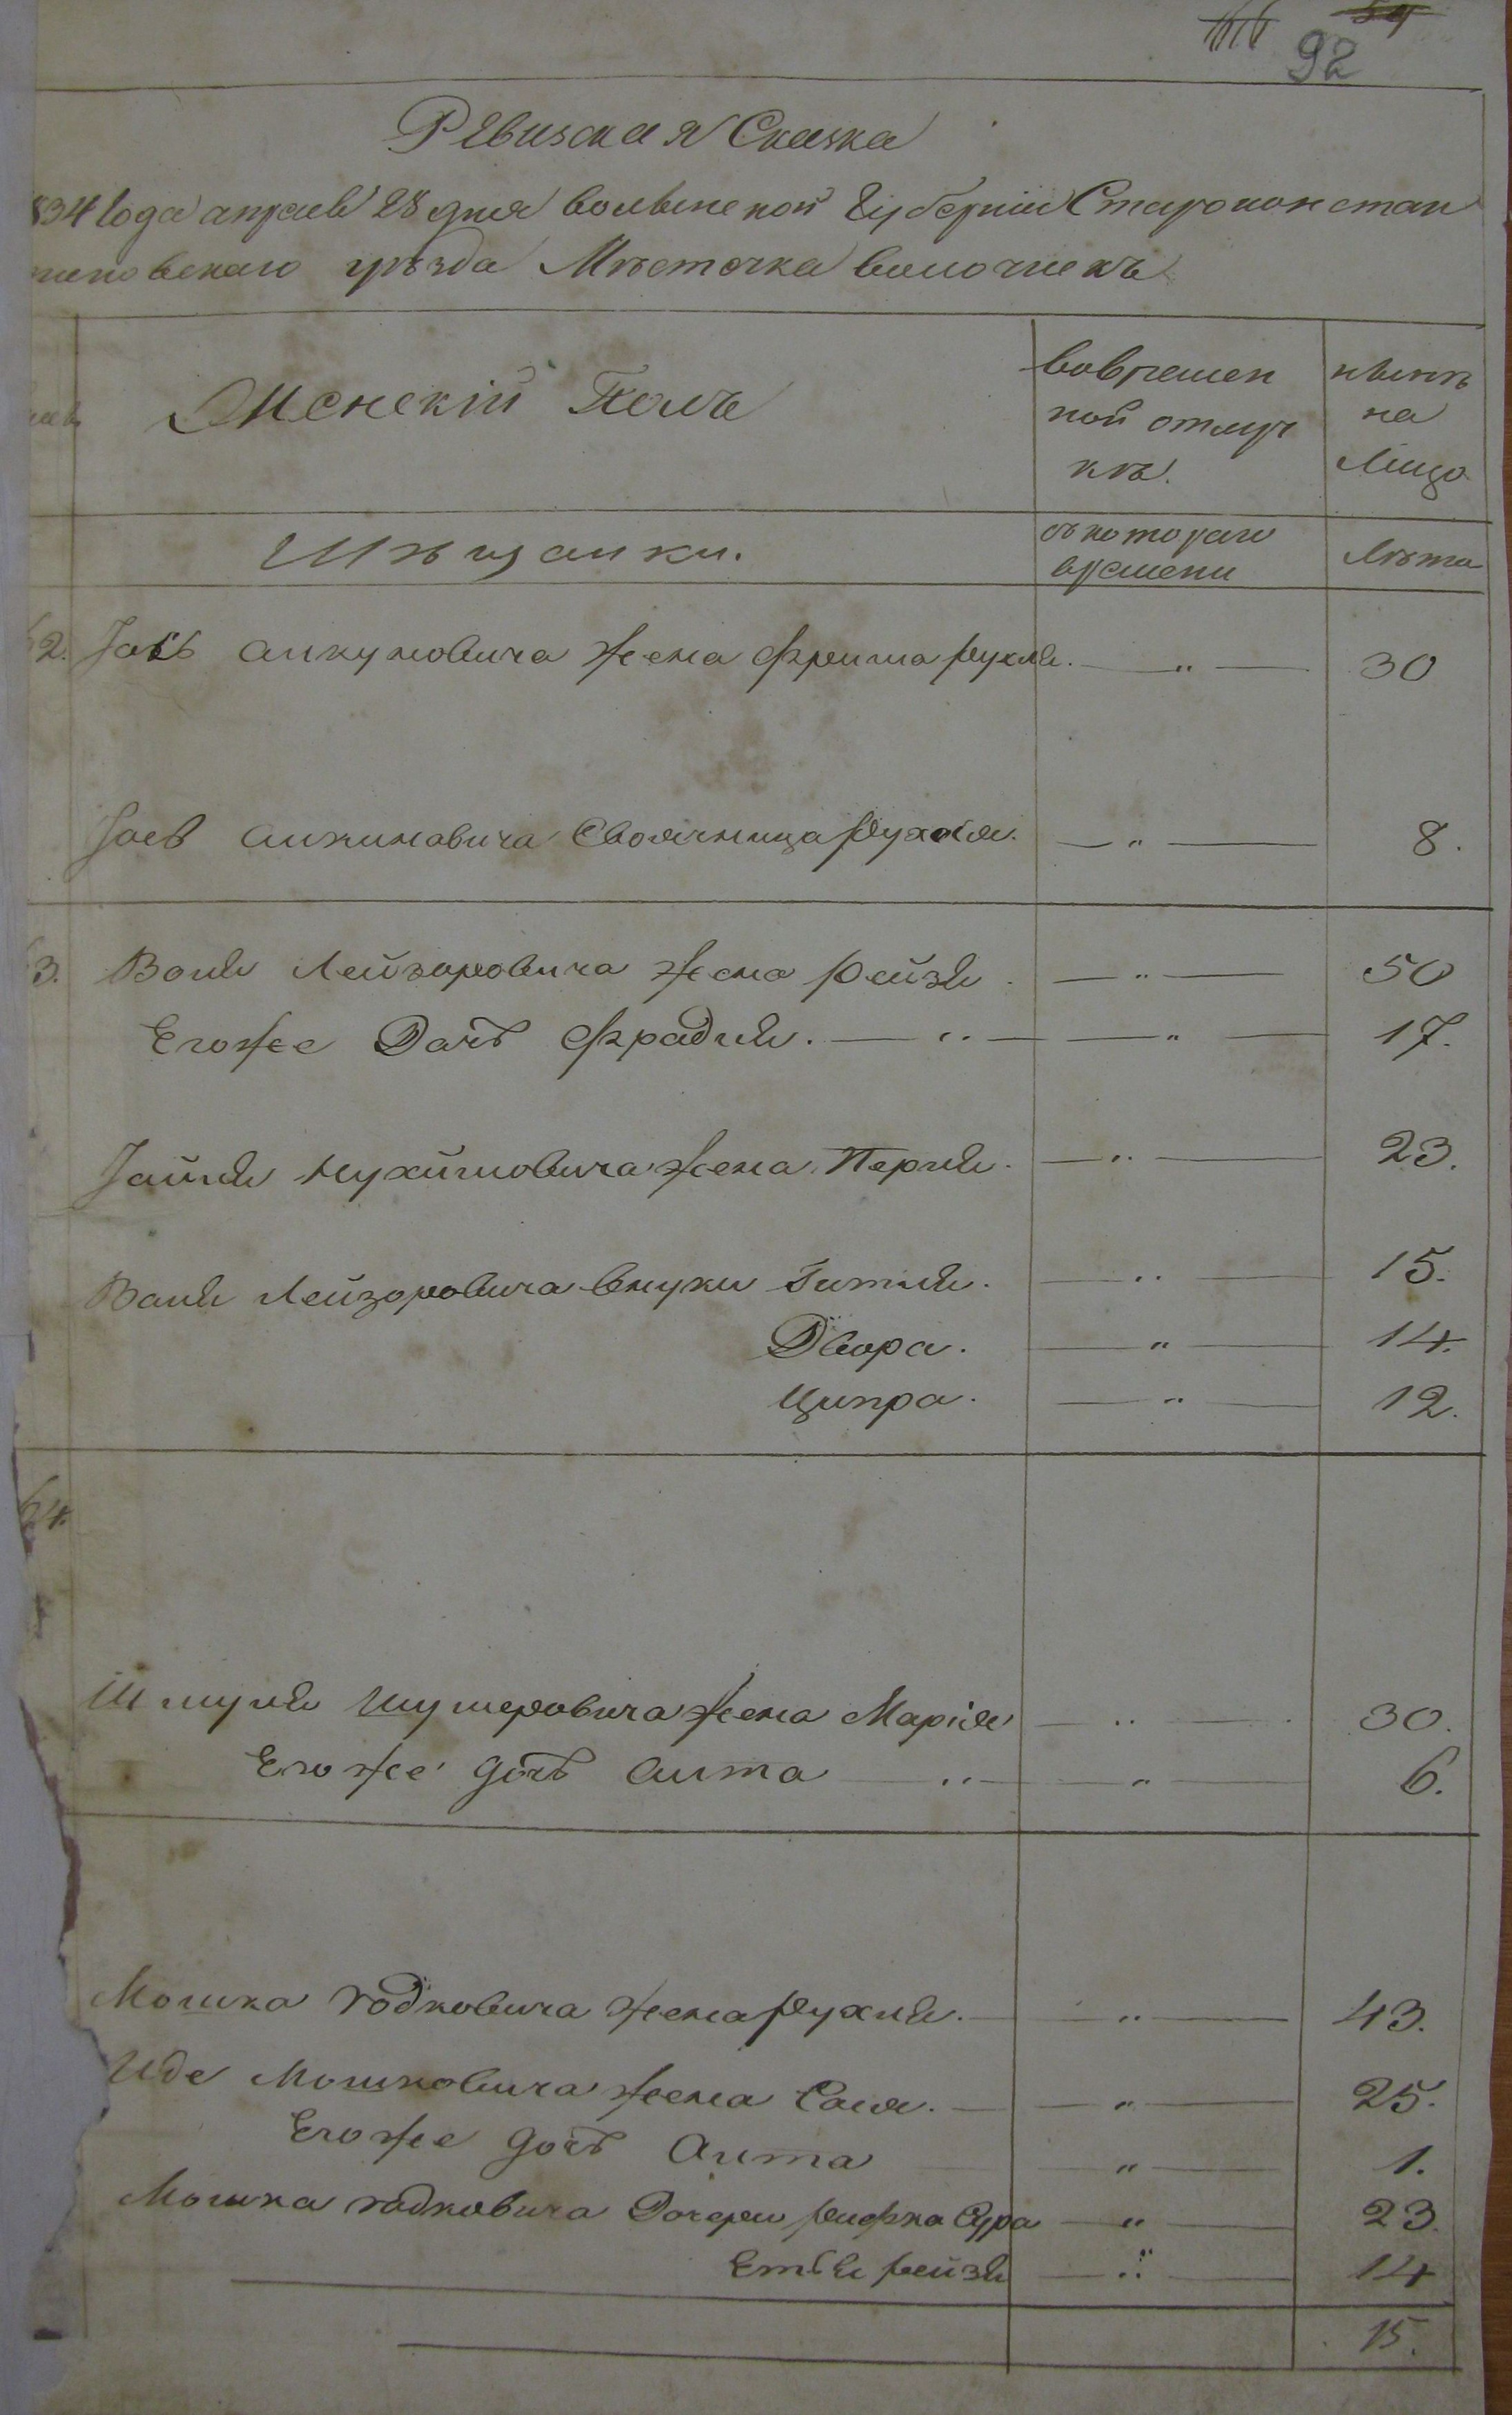 92
Ревизская Сказка
834 Года апрѣля 28 дня Волынской Губерніи Старокон стан
тиновскаго уѣзда Мѣстечка Волочискъ
Женскій Полъ
во времен
ной отлуч
кѣ.
нынѣ
на
лицо
Мѣщанки.
съ котораго
времени
Лѣта
2. жена Фрима Рухля. — " — 30
Свояченица Рухля. — " — 8.
3. Волля Лейзоровича жена Рейзя. — " — 50
Егоже Дочь Фрадля. — " — " — 17.
Нухимовича жена Перля. — " — 23.
Лейзоровича внуки Гитля. — " — 15.
Двора. — " — 14.
Ципра. — " — 12.
64.
Шмуля жена Марія — " — 30.
Егоже дочь Аита — " — " — 6.
Мошка Іодковича жена Рухля. — " — 43.
Иде Мошковича жена Сося. — " — 25.
Егоже дочь Аита — " — 1.
Мошка Іодковича Дочери Рифка Сура — " — 23.
Етля Рейзя — " — 14
15.